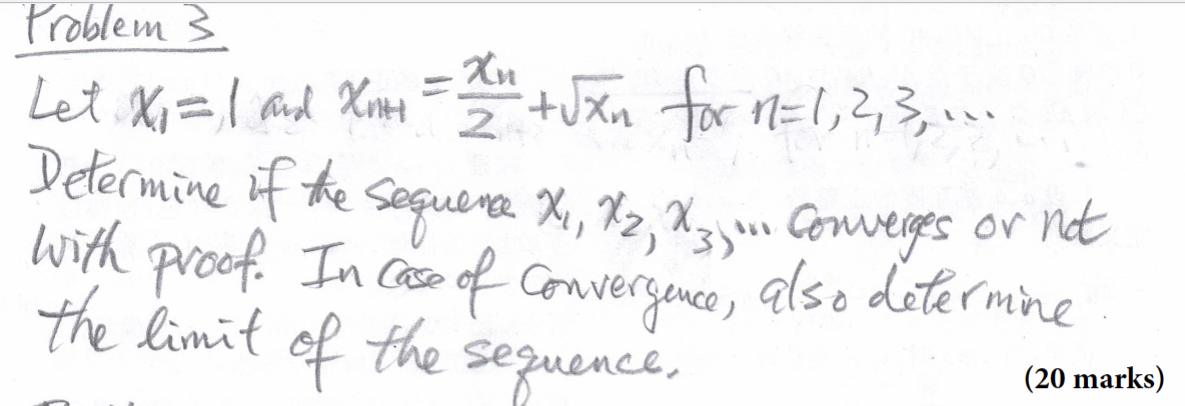 Problem 3
Let x₁ = 1 and xₙ₊₁ = xₙ/2 + √xₙ for n=1,2,3,...
Determine if the sequence x₁, x₂, x₃, ... converges or not
with proof. In case of convergence, also determine
the limit of the sequence.
(20 marks)